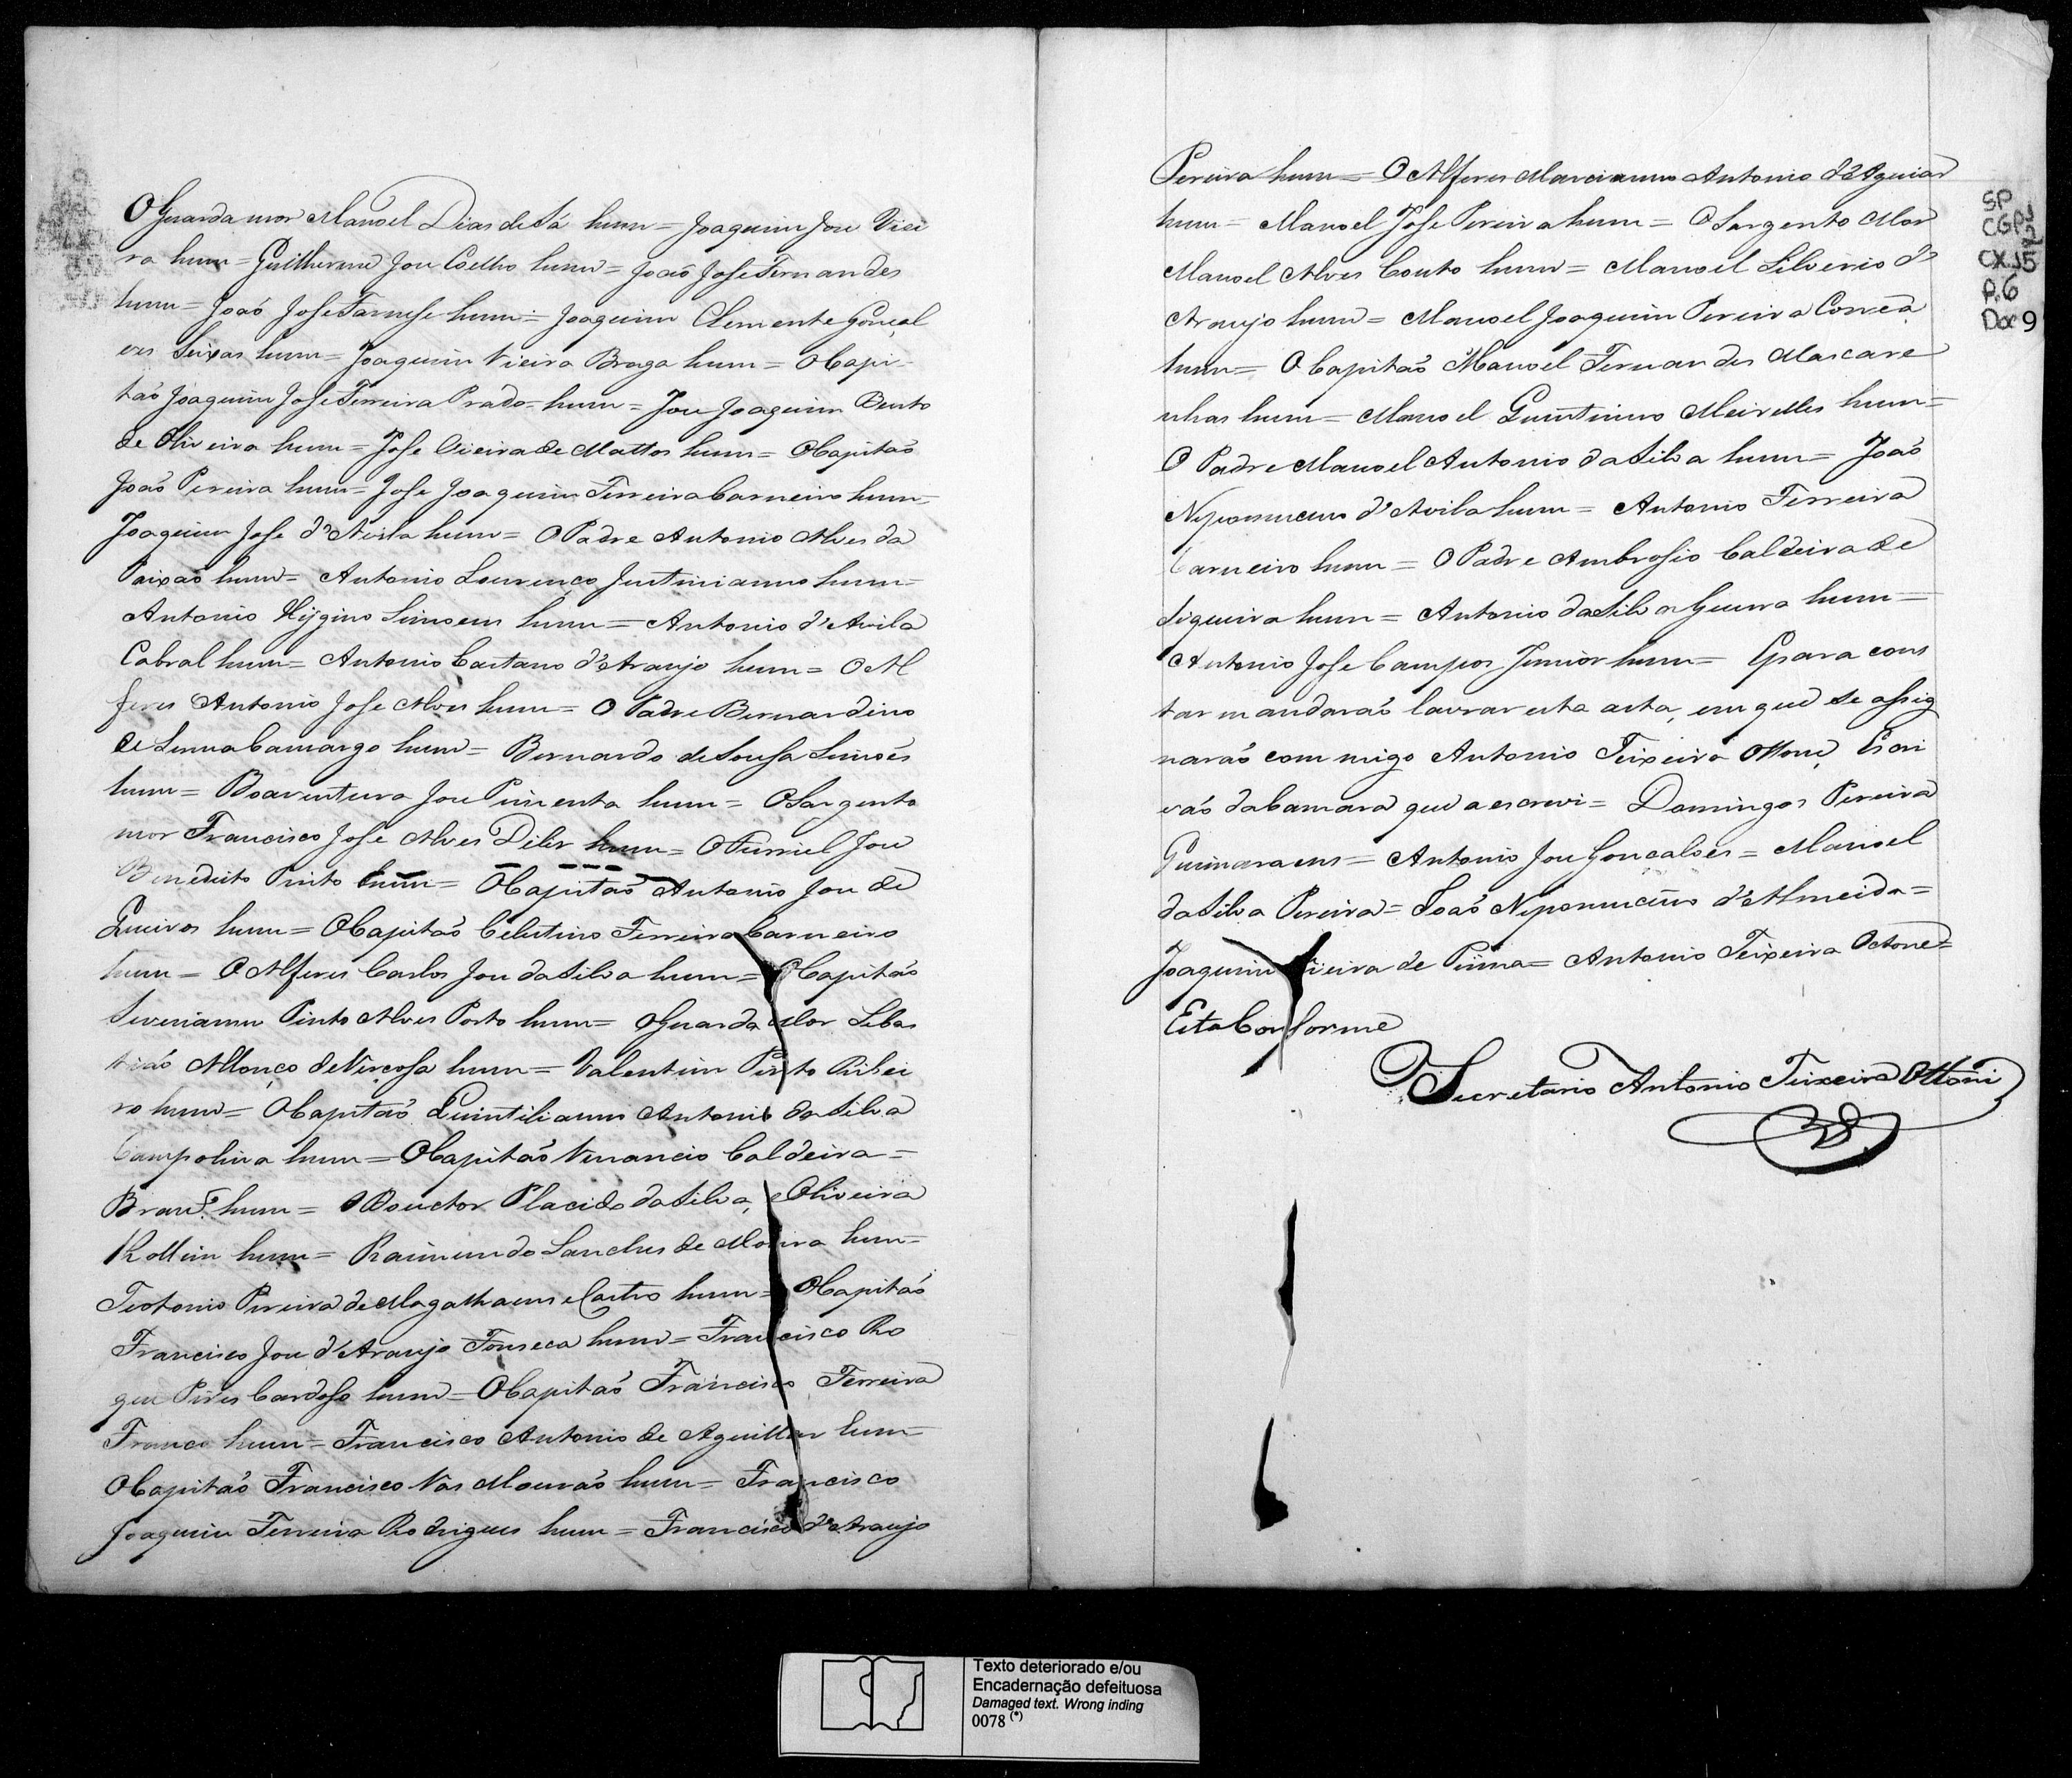 O Guarda mor Manoel Dias de Sá hum = Joaquim Jose Viei
ra hum = Guilherme Jose Coelho hum = João Jose Fernandes
hum = João Jose Farnese hum = Joaquim Clemente Gonçal
ves Seixas hum = Joaquim Vieira Braga hum = O Capi-
tão Joaquim Jose Ferreira Prado = hum = Jose Joaquim Bento
de Oliveira hum = Jose Vieira de Mattos hum = O Capitão
João Pereira hum = Jose Joaquim Ferreira Carneiro hum =
Joaquim Jose d'Avila hum = O Padre Antonio Alves da
Paixão hum = Antonio Lourenço Justinianno hum =
Antonio Hijgino Simoens hum = Antonio d'Avila
Cabral hum = Antonio Caetano d'Araujo hum = O Al
feres Antonio Jose Alves hum = O Padre Bernardino
de Senna Camargo hum = Bernardo de Sousa Simoês
hum = Boaventura Jose Pimenta hum = O Sargento
mor Francisco Jose Alves hum = O Furriel Jose
Benedicto Pinto hum = O Capitão Antonio Jose de
Queiros hum = O Capitão Celestino Ferreira Carneiro
hum = O Alferes Carlos Jose da Silva hum = O Capitão
Severianno Pinto Alves Porto hum = O Guarda Mor Sebas
tião de Viçosa hum = Valentim Pinto Ribei
ro hum = O Capitão Quintilianno Antonio da Silva
Campolina hum = O Capitão Venancio Caldeira =
hum = O Douctor Placido da Silva, e Oliveira
Rollim hum = Raimundo Sanches de Moura hum =
Teotonio Pereira de Magalhaens e Castro hum = O Capitão
Francisco Jose d'Araujo Fonseca hum = Francisco Ro
que Pires Cardoso hum = O Capitão Francisco Ferreira
Franco hum = Francisco Antonio de Aguillar hum =
O Capitão Francisco Vás Mourão hum = Francisco
Joaquim Ferreira Rodrigues hum = Francisco d'Araujo
Pereira hum = O Alferes Marcianno Antonio d'Aguiar
hum = Manoel Jose Pereira hum = O Sargento Mor
Manoel Alves Couto hum = Manoel Silverio d'
Araujo hum = Manoel Joaquim Pereira Corrêa
hum = O Capitão Manoel Fernandes Mascare
nhas hum = Manoel Guintinno Meirelles hum =
O Padre Manoel Antonio da Silva hum = João
Nepomuceno d'Avila hum = Antonio Ferreira
Carneiro hum = O Padre Ambrosio Caldeira de
Siqueira hum = Antonio da Silva Guerra hum =
Antonio Jose Campos Junior hum = E para cons
tar mandarão lavrar esta acta, em que se assig
narão com migo Antonio Teixeira Ottone, Escri
vão da Camara que a escrevi = Domingos Pereira
Guimaraens = Antonio Jose Goncalves = Manoel
da Silva Pereira = João Nepomuceno d'Almeida =
Joaquim Vieira de Pinna = Antonio Teixeira Octone =
Está Conforme
O Secretario Antonio Teixeira Ottoni
SP
CGP1
CX.15
P.6
Doc 9
Texto deteriorado e/ou
Encadernação defeituosa
Damaged text. Wrong inding
0078 (*)